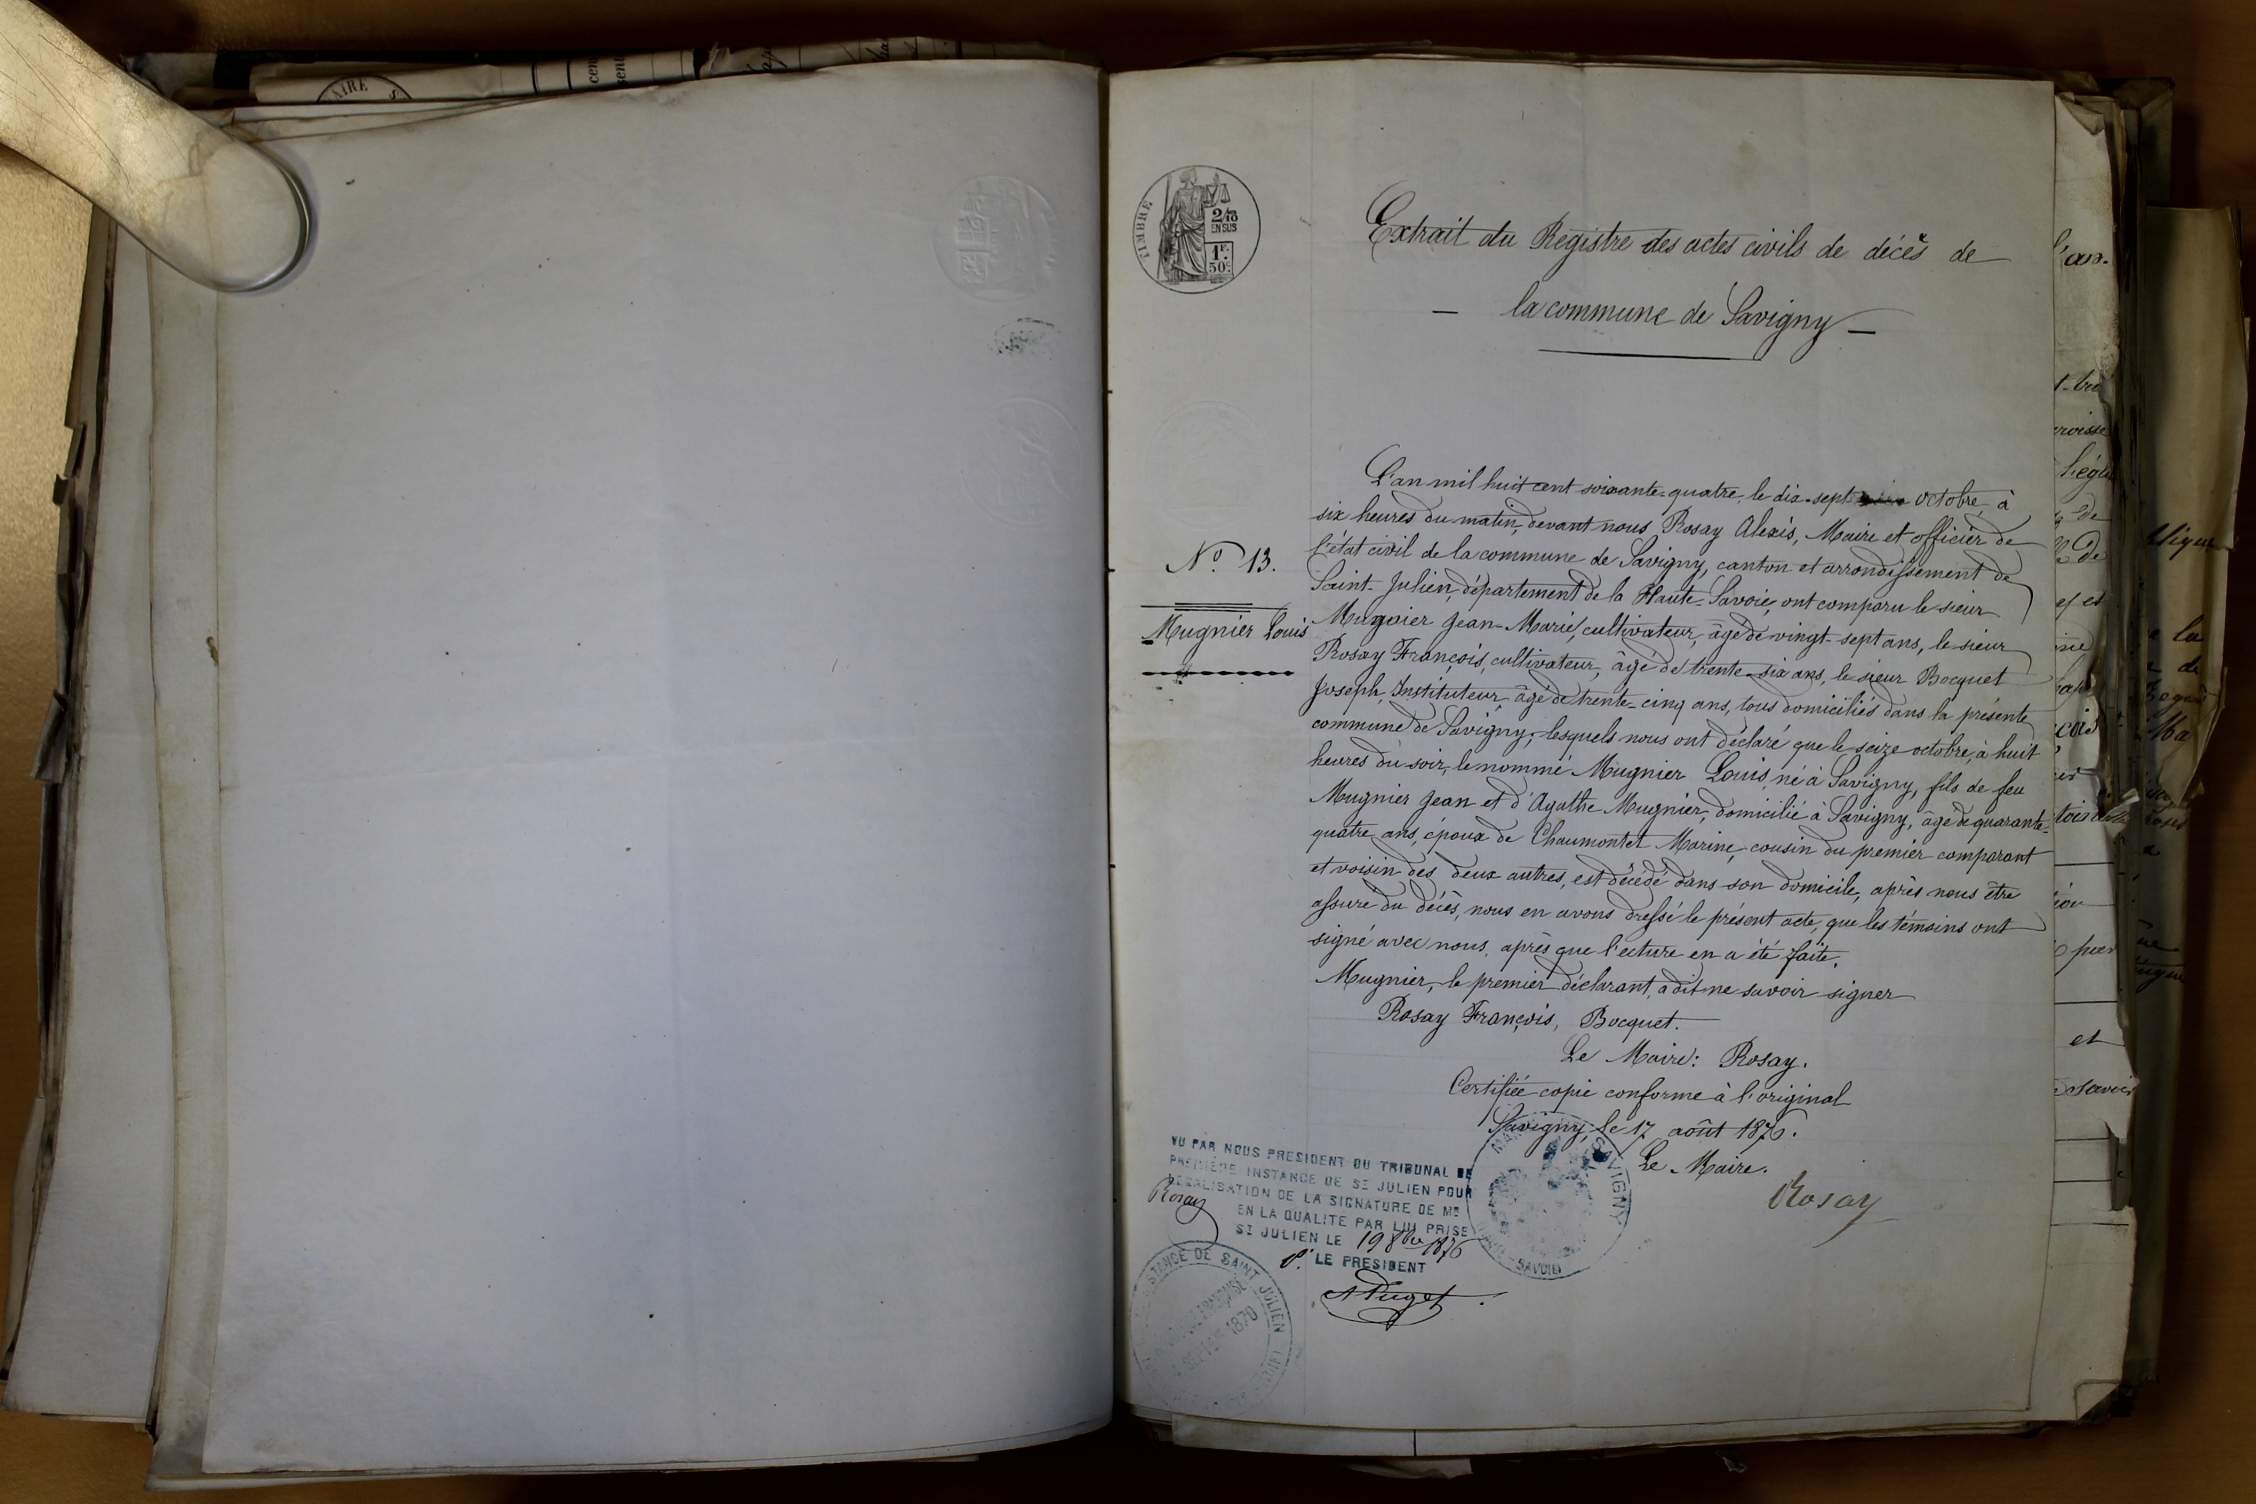 TIMBRE
2/10
EN SUS
1F.
50c
Extrait du Registre des actes civils de décès de
la commune de Savigny
L'an mil huit cent soixante-quatre, le dix-sept octobre, à
six heures du matin, devant nous Rosay Alexis, Maire et officier de
l'état civil de la commune de Savigny, canton et arrondissement de
Saint-Julien, département de la Haute-Savoie, ont comparu le sieur
Mugnier Jean-Marie, cultivateur, âgé de vingt-sept ans, le sieur
Rosay François, cultivateur, âgé de trente-six ans, le sieur Bocquet
Joseph, Instituteur, âgé de trente-cinq ans, tous domiciliés dans la présente
commune de Savigny; lesquels nous ont déclaré que le seize octobre, à huit
heures du soir, le nommé Mugnier Louis, né à Savigny, fils de feu
Mugnier Jean et d'Agathe Mugnier, domicilié à Savigny, âgé de quarante-
quatre ans, époux de Chaumontet Marine, cousin du premier comparant
et voisin des deux autres, est décédé dans son domicile, après nous être
assuré du décès, nous en avons dressé le présent acte, que les témoins ont
signé avec nous, après que lecture en a été faite.
Mugnier, le premier déclarant, a dit ne savoir signer
Rosay François, Bocquet.
Le Maire: Rosay.
Certifiée copie conforme à l'original
Savigny, le 17 août 1876.
Le Maire.
Rosay
No. 13.
Mugnier Louis
VU PAR NOUS PRESIDENT DU TRIBUNAL DE
PREMIÈRE INSTANCE DE ST JULIEN POUR
LEGALISATION DE LA SIGNATURE DE MR
Rosay
EN LA QUALITE PAR LUI PRISE
ST JULIEN LE 19 8bre 1876
Pr. LE PRESIDENT
SAVIGNY
SAVOIE
INSTANCE DE SAINT JULIEN
1870